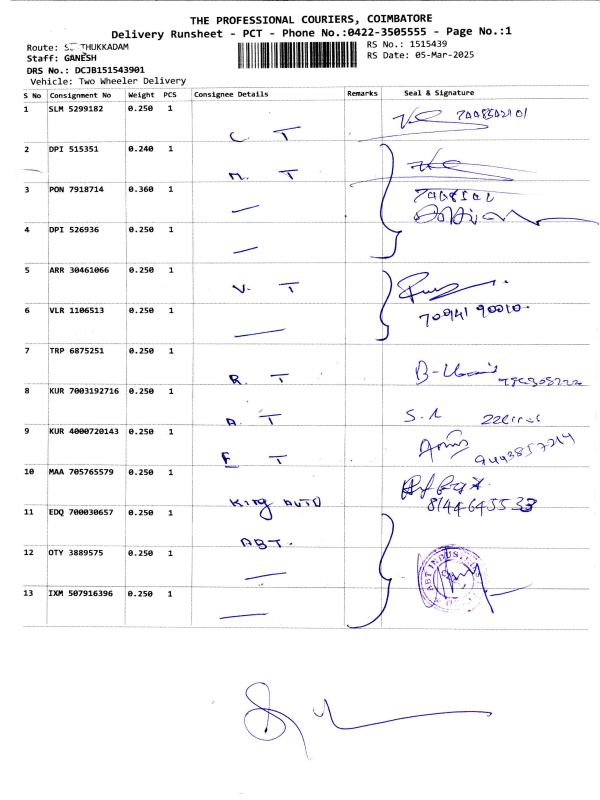 THE PROFESSIONAL COURIERS, COIMBATORE
Delivery Runsheet - PCT - Phone No.:0422-3505555 - Page No.:1
Route: THUKKADAM
RS No.: 1515439
Staff: GANESH
RS Date: 05-Mar-2025
DRS No.: DCJB151543901
Vehicle: Two Wheeler Delivery
S No Consignment No Weight PCS Consignee Details Remarks Seal & Signature
1 SLM 5299182 0.250 1
C T
2 DPI 515351 0.240 1
M. T
3 PON 7918714 0.360 1
4 DPI 526936 0.250 1
5 ARR 30461066 0.250 1
V. T
6 VLR 1106513 0.250 1
7 TRP 6875251 0.250 1
R. T
8 KUR 7003192716 0.250 1
A. T
9 KUR 4000720143 0.250 1
F T
10 MAA 705765579 0.250 1
King AUTO
11 EDQ 700030657 0.250 1
ABT.
12 OTY 3889575 0.250 1
13 IXM 507916396 0.250 1